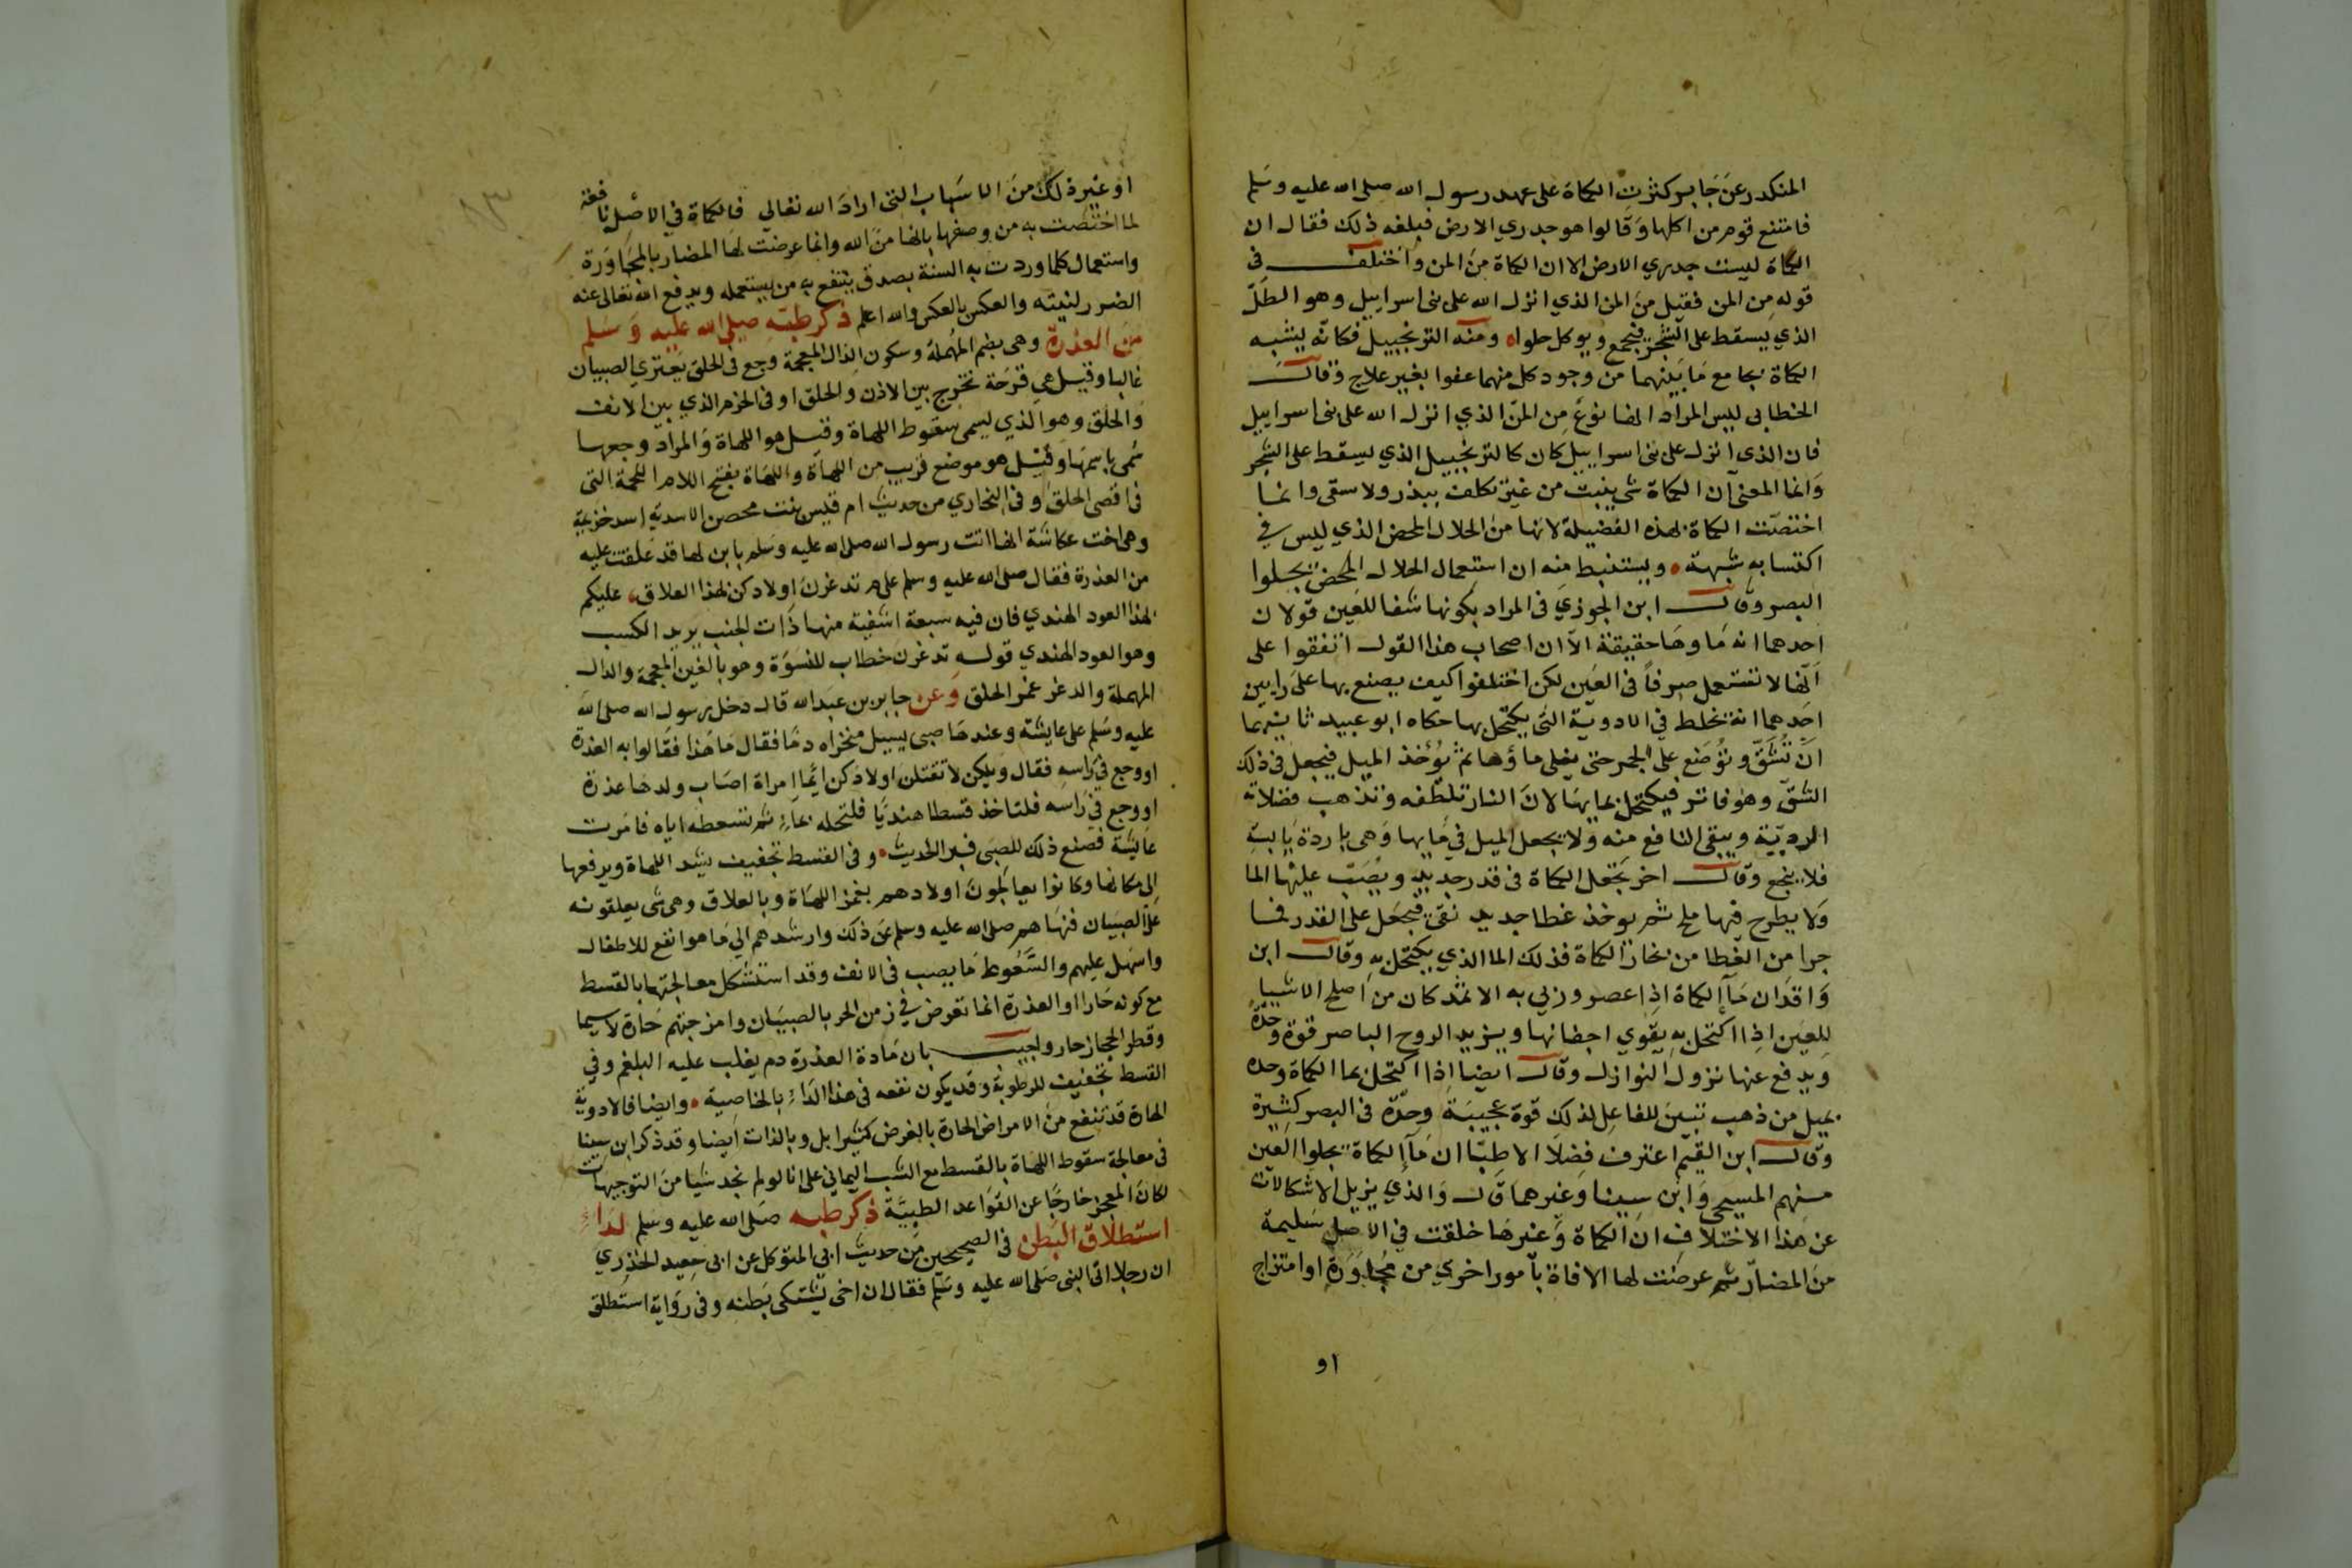 المنكدر عن جابر كثرت الكماة على عهد رسول الله صلى الله عليه وسلم
فامتنع قوم من اكلها وقالوا هو جدري الارض فبلغه ذلك فقال ان
الكماة ليست جدري الارض الا ان الكماة من المن واختلف في
قوله من المن فقيل من المن الذي انزل الله على بنى اسراييل وهو الطل
الذي يسقط على الشجر فيجمع ويوكل حلوا ومنه الترنجبيل فكانه يشبه
الكماة بجامع ما بينهما من وجود كل منهما عفوا بغير علاج وقال
الخطابى ليس المراد انها نوع من المن الذي انزل الله على بنى اسراييل
فان الذى انزل على بنى اسراييل كان كالترنجبيل الذي يسقط على الشجر
وانما المعنى ان الكماة شى ينبت من غير تكلف ببذر ولا سقى وانما
اختصت الكماة بهذه الفضيلة لانها من الحلال المحض الذي ليس في
اكتسابه شبهة ويستنبط منه ان استعمال الحلال المحض يجلوا
البصر وقال ابن الجوزي في المراد بكونها شفا للعين قولان
احدهما انه ماوها حقيقة الا ان اصحاب هذا القول اتفقوا على
انها لا تستعمل صرفا فى العين لكن اختلفوا كيف يصنع بها على رايين
احدهما انه يخلط في الادوية التي يكتحل بها حكاه ابو عبيد ثانيهما
ان تشق وتوضع على الجمر حتى يغلى ماؤها ثم يؤخذ الميل فيجعل فى ذلك
الشق وهو فاتر فيكتحل بمايها لان النار تلطفه وتذهب فضلاته
الردية ويبقى النافع منه ولا يجعل الميل في مايها وهى باردة يابسة
فلا ينجع وقال اخر تجعل الكماة فى قدر جديد ويصب عليها الما
ولا يطرح فيها ملح ثم يوخذ غطا جديد نقى فيجعل على القدر فما
جرا من الغطا من بخار الكماة فذلك الما الذي يكتحل به وقال ابن
واقد ان ما الكماة اذا عصر وربي به الاثمد كان من اصلح الاشيا
للعين اذا اكتحل به يقوي اجفانها ويزيد الروح الباصر قوة وحدة
ويدفع عنها نزول النوازل وقال ايضا اذا اكتحل بما الكماة وحده
بميل من ذهب تبين للفاعل لذلك قوة عجيبة وحدة فى البصر كثيرة
وقال ابن القيم اعترف فضلا الاطبا ان ما الكماة يجلوا العين
منهم المسيحى وابن سينا وغيرهما قال والذي يزيل الاشكالات
عن هذا الاختلاف ان الكماة وغيرها خلقت في الاصل سليمة
من المضار ثم عرضت لها الافاة بامور اخري من مجاورة او امتزاج
او
او غير ذلك من الاسباب التى اراد الله تعالي فالكماة في الاصل نافعة
لما اختصت به من وصفها بانها من الله وانما عرضت لها المضار بالمجاورة
واستعمال كلما وردت به السنة بصدق ينتفع به من يستعمله ويدفع الله تعالى عنه
الضرر لنيته والعكس بالعكس والله اعلم ذكر طبه صلى الله عليه وسلم
من العذرة وهى بضم المهملة وسكون الذال المعجمة وجع فى الحلق يعتري الصبيان
غالبا وقيل هي قرحة تخرج بين الاذن والحلق او فى الخرم الذي بين الانف
والحلق وهو الذي يسمى سقوط اللهاة وقيل هو اللهاة والمراد وجعها
سمى باسمها وقيل هو موضع قريب من اللهاة واللهاة بفتح اللام اللحمة التى
فى اقصى الحلق وفى البخاري من حديث ام قيس بنت محصن الاسدية اسد خزيمة
وهى اخت عكاشة انها اتت رسول الله صلى الله عليه وسلم بابن لها قد علقت عليه
من العذرة فقال صلى الله عليه وسلم على م تدغرن اولادكن بهذا العلاق عليكم
بهذا العود الهندي فان فيه سبعة اشفية منها ذات الجنب يريد الكست
وهو العود الهندي قوله تدغرن خطاب للنسوة وهو بالغين المعجمة والدال
المهملة والدغر غمز الحلق وعن جابر بن عبد الله قال دخل رسول الله صلى الله
عليه وسلم على عايشة وعندها صبي يسيل منخراه دما فقال ما هذا فقالوا به العذرة
او وجع في راسه فقال ويلكن لا تقتلن اولادكن ايما امراة اصاب ولدها عذرة
او وجع في راسه فلتاخذ قسطا هنديا فلتحله بماء ثم تسعطه اياه فامرت
عايشة فصنع ذلك للصبي فبر الحديث وفى القسط تجفيف يشد اللهاة ويرفعها
الى مكانها وكانوا يعالجون اولادهم بغمز اللهاة وبالعلاق وهى شى يعلقونه
على الصبيان فنهاهم صلى الله عليه وسلم عن ذلك وارشدهم الي ما هو انفع للاطفال
واسهل عليهم والسعوط ما يصب فى الانف وقد استشكل معالجتها بالقسط
مع كونه حارا او العذرة انما تعرض في زمن الحر بالصبيان وامزجتهم حارة لاسيما
وقطر الحجاز حار واجيب بان مادة العذرة دم يغلب عليه البلغم وفي
القسط تجفيف للرطوبة وقد يكون نفعه فى هذا الداء بالخاصية وايضا فالادوية
الحارة قد تنفع من الامراض الحارة بالعرض كثيرا بل وبالذات ايضا وقد ذكر ابن سينا
فى معالجة سقوط اللهاة بالقسط مع الشب اليماني على انا لو لم نجد شيا من التوجيهات
لكان المعجز خارجا عن القواعد الطبية ذكر طبه صلى الله عليه وسلم لداء
استطلاق البطن فى الصحيحين من حديث ابي المتوكل عن ابى سعيد الخذري
ان رجلا اتى النبى صلى الله عليه وسلم فقال ان اخى يشتكي بطنه وفى رواية استطلق